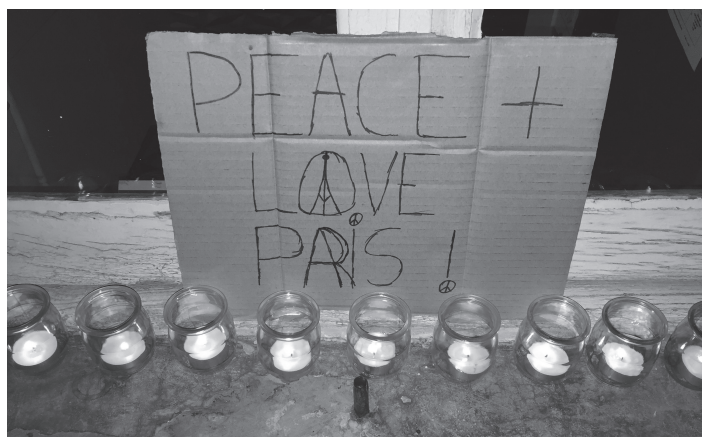 PEACE +
LOVE
PARIS !